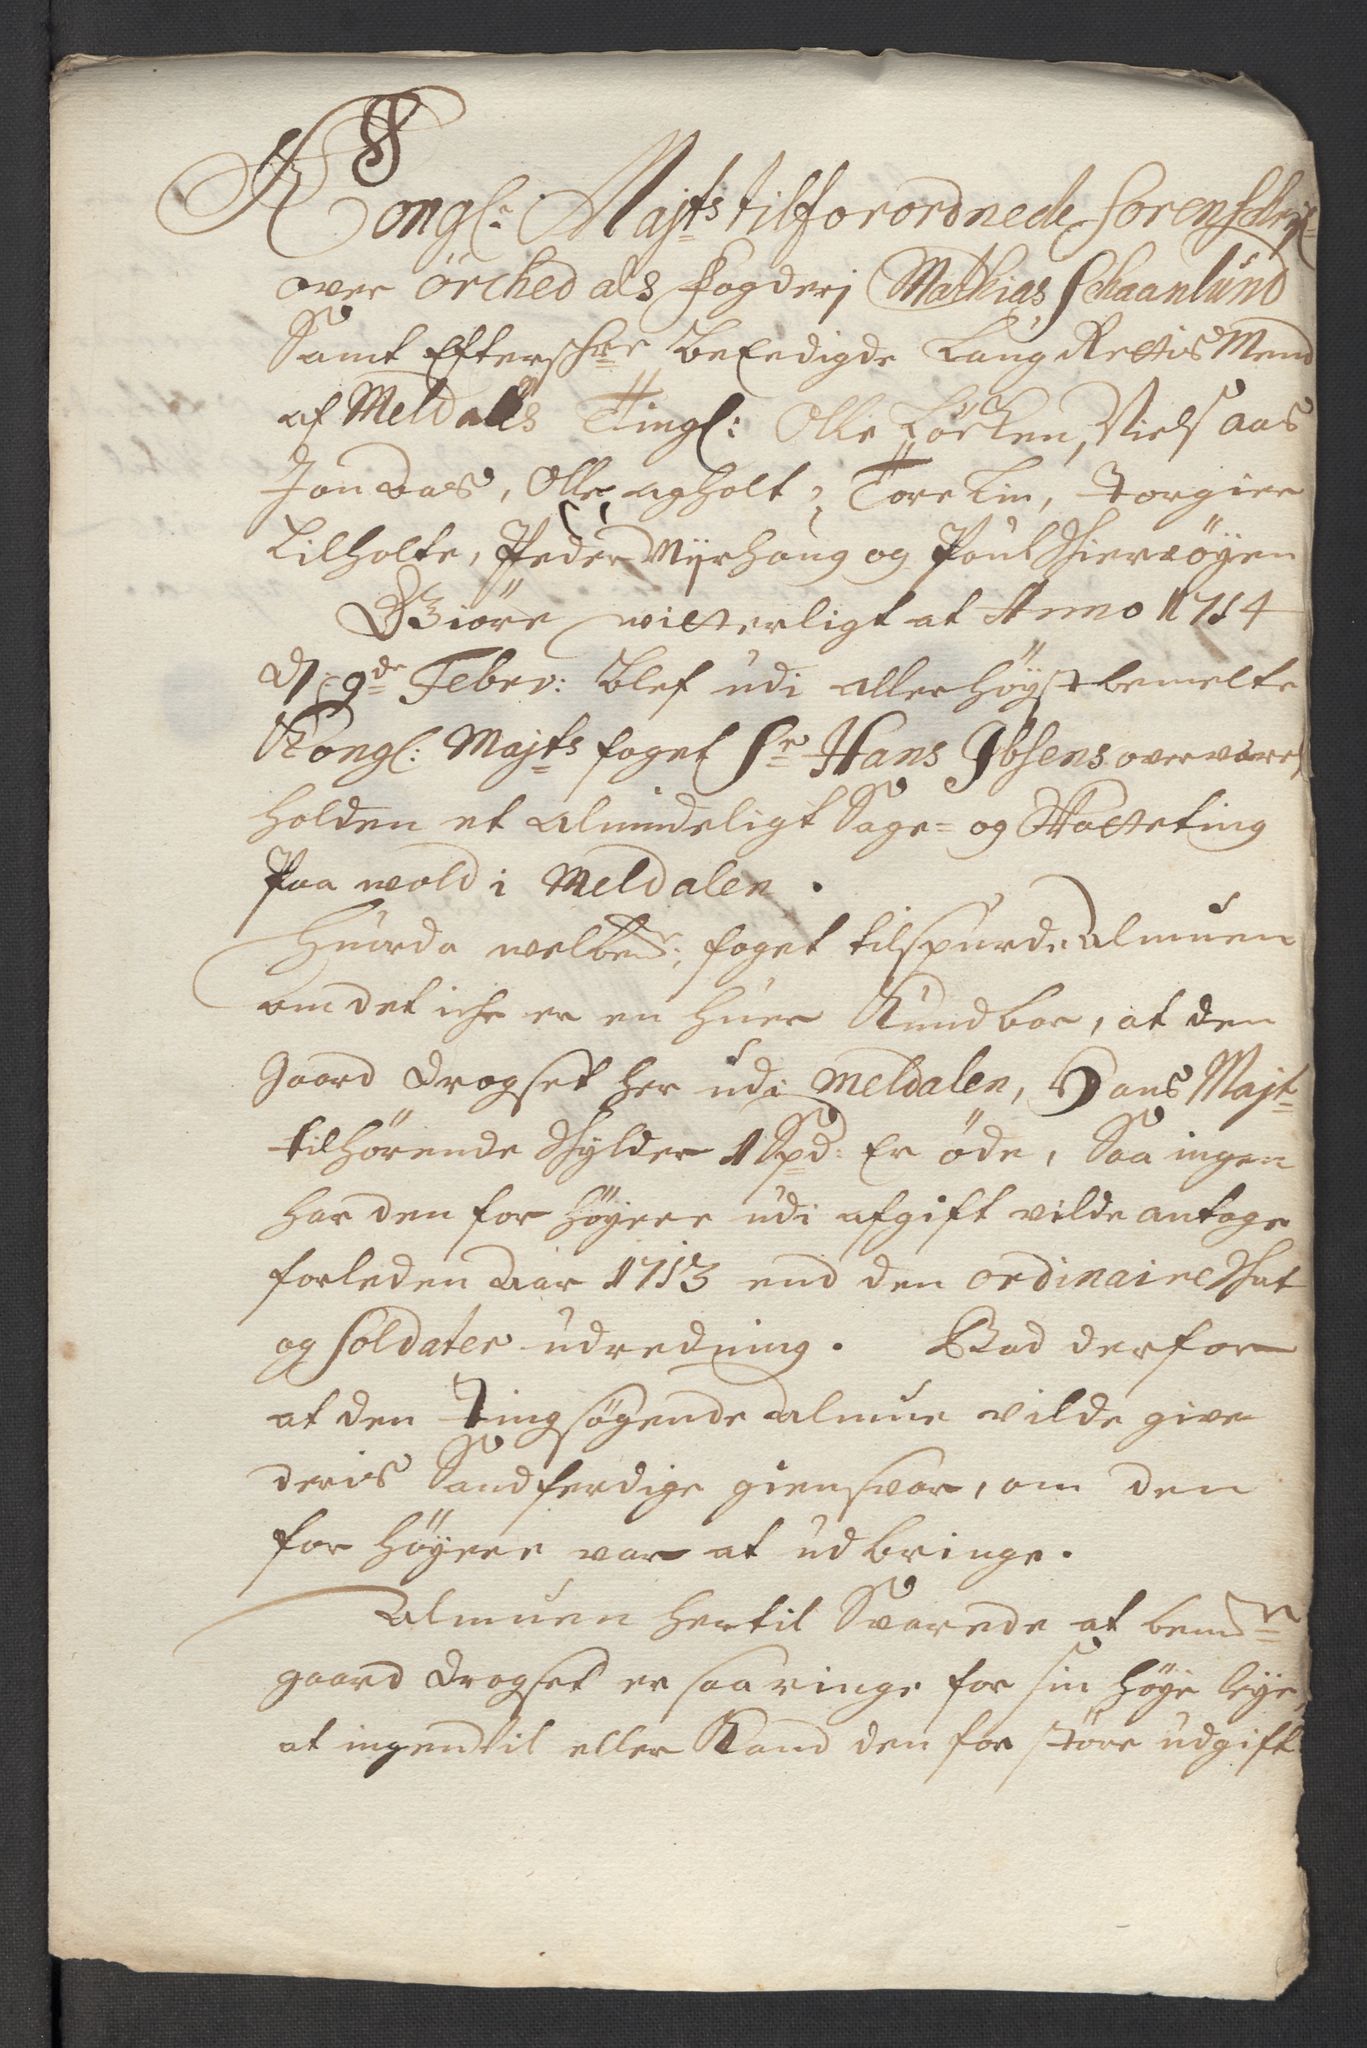 Kongl: Majts tilforordnede Sorenschrif=
over örchedals fogderj Mathias Schaanlund
Samt Efterschrr Beeedigde Laug Rettis Mend
af Meldals Tingl: Olle Löcken, Niels aas
Jon Aas, Olle agholt, Tore Lin, Torgier
Lilholte, Peder Myrhaug og Poul Schierøyen
Giöre witterligt at Anno 1714
d 9de Febrv: Blef udi allerhøyst bemelte
Kongl: Majts foget Sr Hans Ibsens overværelse
holden et almindeligt Sage= og Skatteting
Paa wold i Meldalen.
Huorda welbemte foget tilspurde almuen
om det iche er en huer Kundbar, at den
gaard Drogset her udi Meldalen, Hans Majt
tilhörende Schylder 1 Spd: Er öde, Saa ingen
har den for høyere udi afgift vilde antage
forleden aar 1713 end den ordinaire Schat
og Soldates udredning. Bad derfor
at den Tingsøgende almue vilde give
deris Sandferdige giensvar, om den
for høyere var at udbringe.
Almuen hertil Svarede at bemte
gaard Drogset er saa ringe for sin høye leye,
at ingen vil eller Kand den for störe udgift